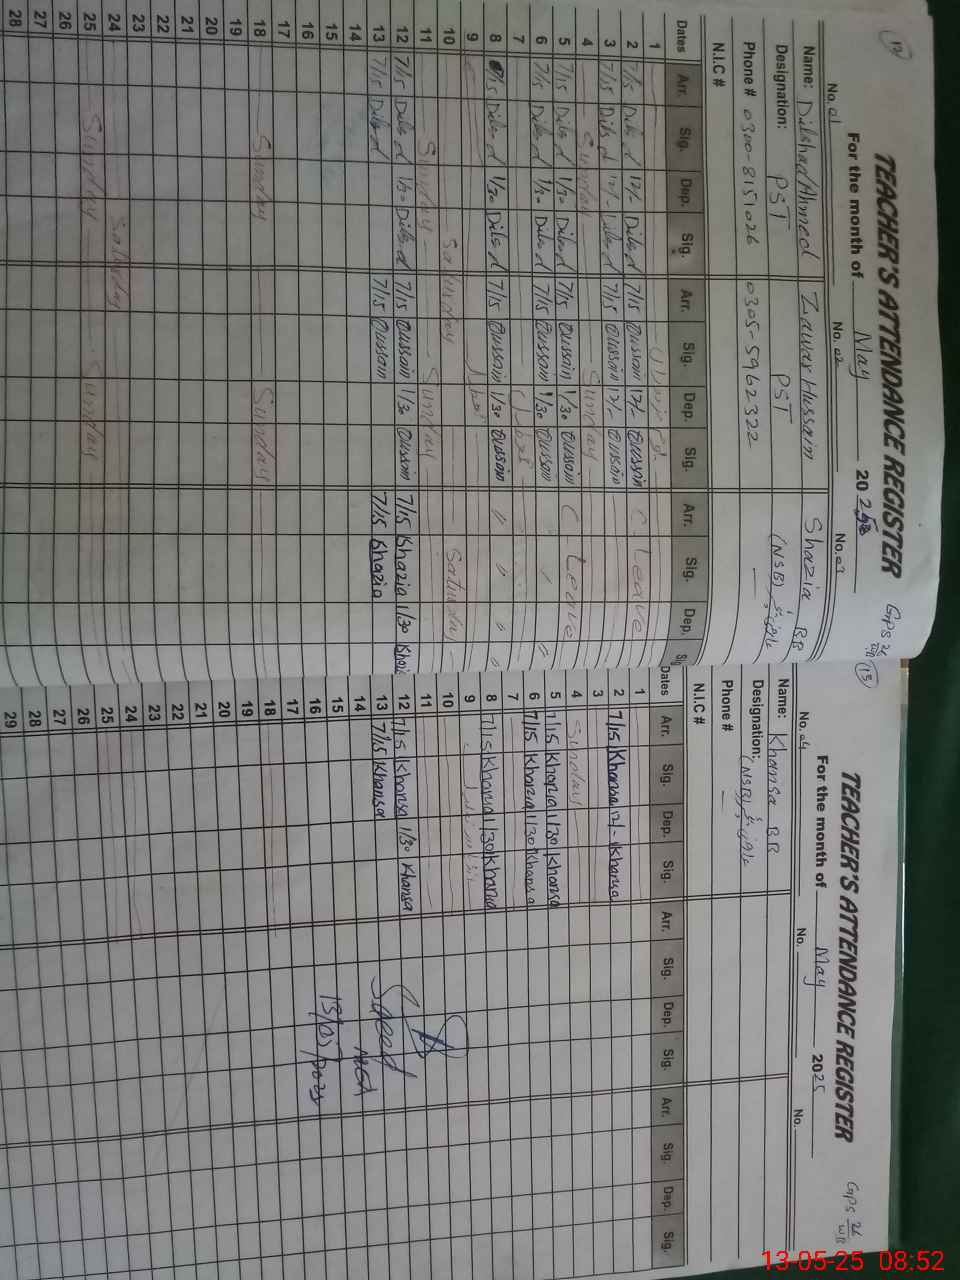 12
TEACHER'S ATTENDANCE REGISTER
For the month of May 2025
GPS 26/WB
No. 01 No. 02 No. 03
Name: Dilshad Ahmed Zawar Hussain Shazia BB
Designation: PST PST (NSB)
Phone # 0300-8151026 0305-5962322 —
N.I.C #
Dates Arr. Sig. Dep. Sig. Arr. Sig. Dep. Sig. Arr. Sig. Dep. Sig.
1
2 7/15 Dilshad 12/- Dilshad 7/15 Hussain 12/- Hussain C. Leave
3 7/15 Dilshad 12/- Dilshad 7/15 Hussain 12/- Hussain
4 Sunday Sunday
5 7/15 Dilshad 1/30 Dilshad 7/15 Hussain 1/30 Hussain C Leave
6 7/15 Dilshad 1/30 Dilshad 7/15 Hussain 1/30 Hussain " " "
7
8 7/15 Dilshad 1/30 Dilshad 7/15 Hussain 1/30 Hussain " " " "
9
10 Saturday Saturday
11 Sunday Sunday
12 7/15 Dilshad 1/30 Dilshad 7/15 Hussain 1/30 Hussain 7/15 Shazia 1/30 Shazia
13 7/15 Dilshad 7/15 Hussain 7/15 Shazia
14
15
16
17
18 Sunday Sunday
19
20
21
22
23
24 Saturday
25 Sunday Sunday
26
27
28
13
TEACHER'S ATTENDANCE REGISTER
For the month of May 2025
GPS 26/WB
No. 04 No. No.
Name: Khansa BB
Designation: (NSB)
Phone # —
N.I.C #
Dates Arr. Sig. Dep. Sig. Arr. Sig. Dep. Sig. Arr. Sig. Dep. Sig.
1
2 7/15 Khansa 12/- Khansa
3
4 Sunday
5 7/15 Khansa 1/30 Khansa
6 7/15 Khansa 1/30 Khansa
7
8 7/15 Khansa 1/30 Khansa
9
10
11
12 7/15 Khansa 1/30 Khansa
13 7/15 Khansa
14
15
16
17
18
19
20
21
22
23
24
25
26
27
28
29
Saeed
MEA
13/05/2025
13-05-25 08:52